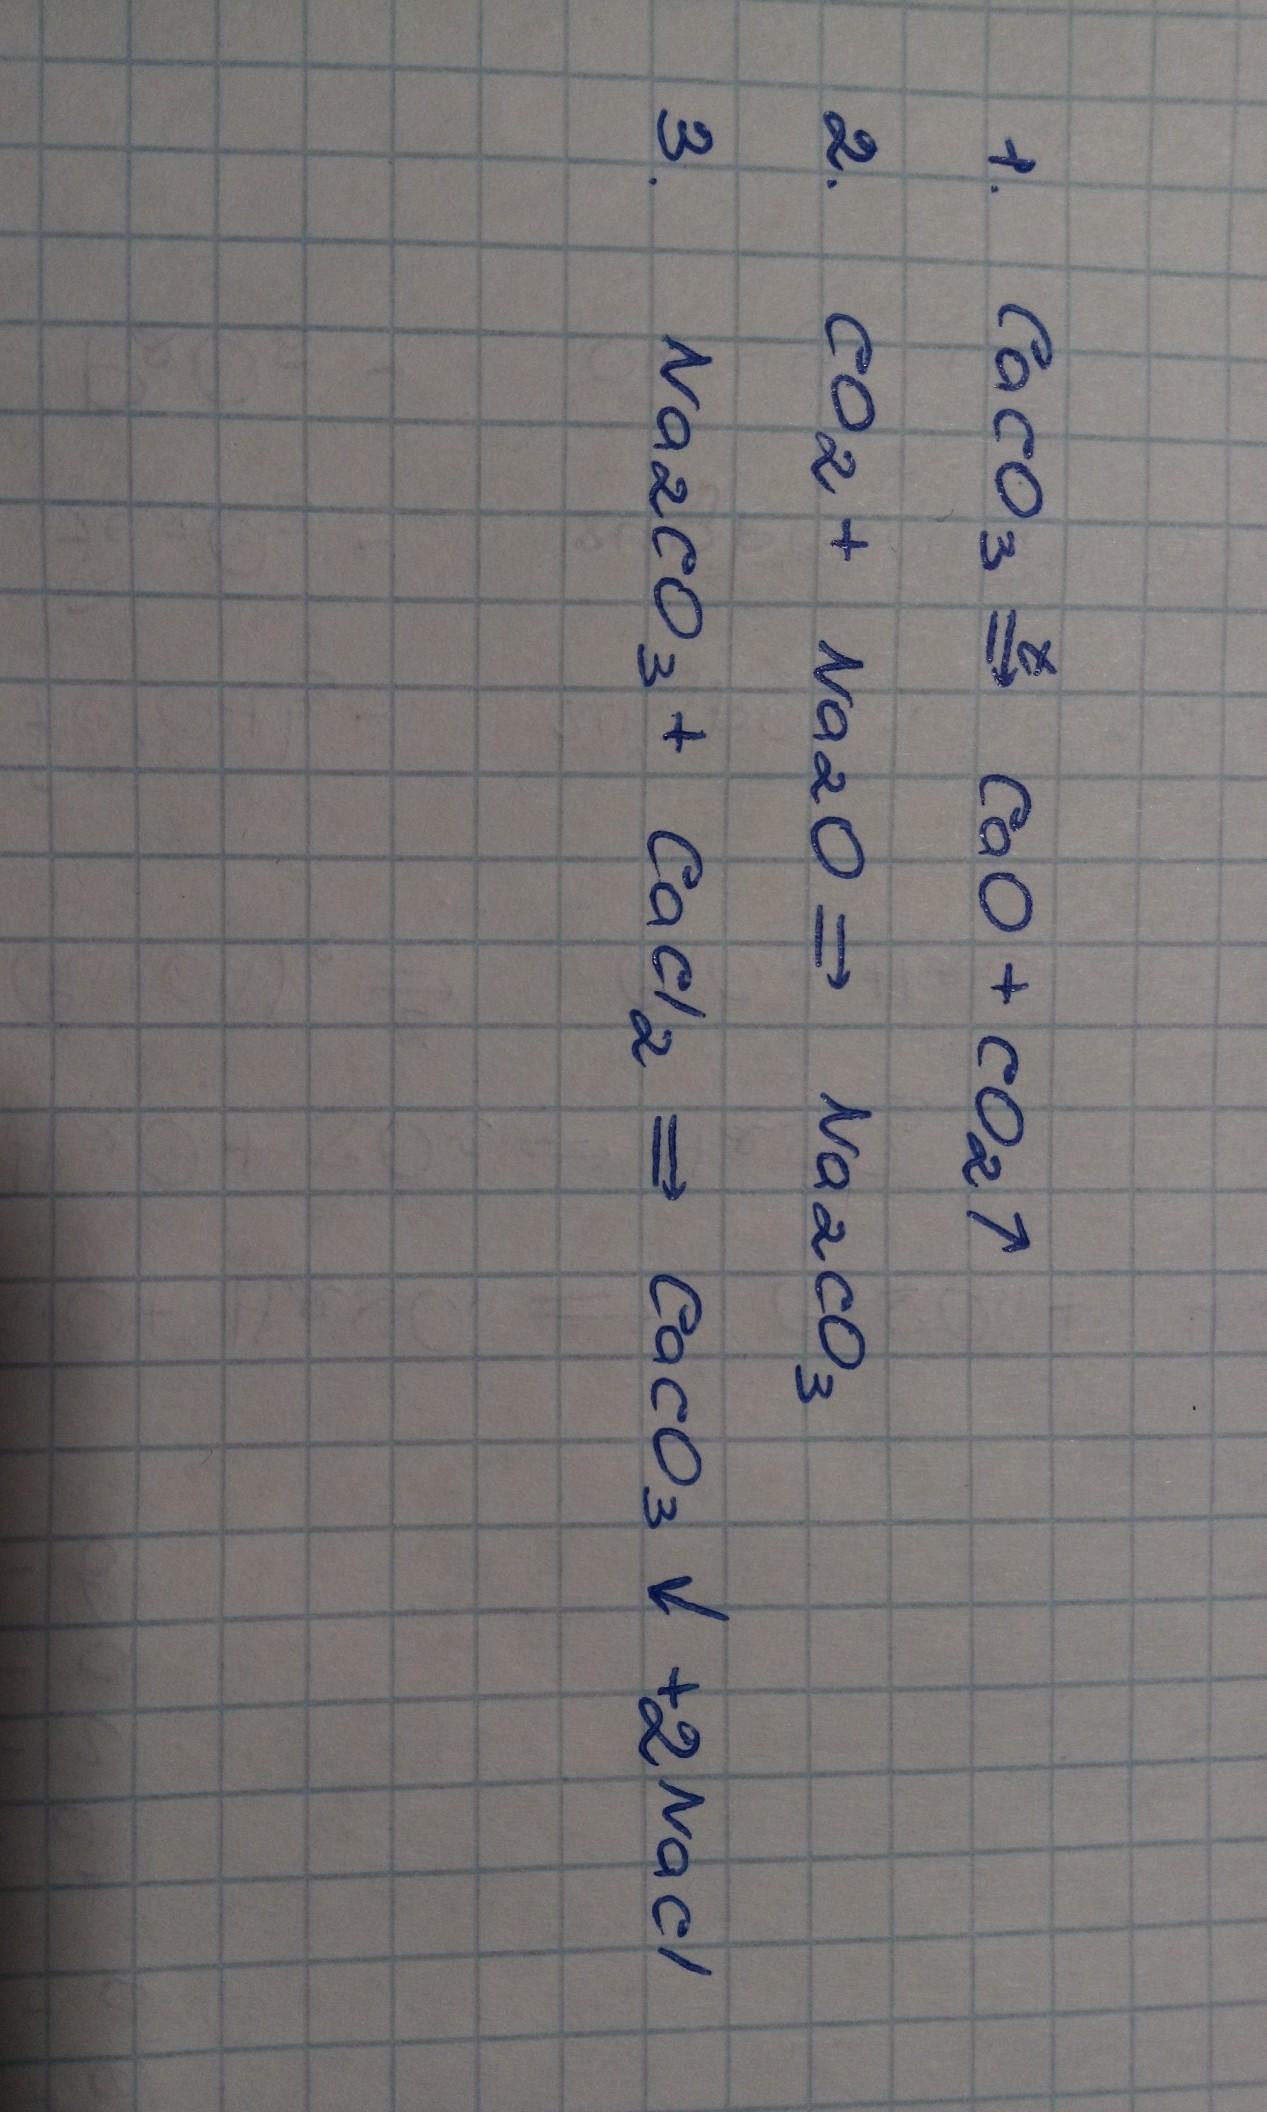 1. CaCO₃ ⇒ᵗ CaO + CO₂↑
2. CO₂ + Na₂O ⇒ Na₂CO₃
3. Na₂CO₃ + CaCl₂ ⇒ CaCO₃ ↓ + 2NaCl